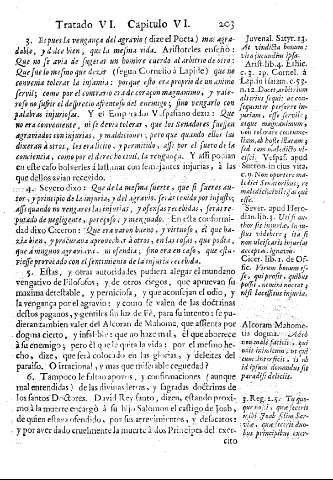 Tratado VI. Capitulo VI. 203
3. Es pues la vengança del agravio (dize el Poeta) mas agra-
dable, y dize bien, que la mesma vida. Aristoteles enseñò:
Que no se avia de sugetar un hombre cuerdo al arbitrio de otro:
Que fue lo mesmo que dezir (segun Cornelio à Lapide) que no
convenia tolerar la injuria: porque esta era proprio de un animo
servil; como por el contrario era de coraçon magnanimo, y vale-
roso no sufrir el desprecio afrentoso del enemigo; sino vengarlo con
palabras injuriosas. Y el Emperador Vespasiano dezia: Que
no era conveniente, ni se devia tolerar, que los Senadores fuessen
agraviados con injurias, y maldiciones; pero que quando ellos las
dixeran à otros, les era licito, y permitido, assi por el fuero de la
conciencia, como por el derecho civil, la vengança. Y assi podian
en este caso bolverles à lastimar con semejantes injurias, à las
que dellos avian recevido.
4. Severo dixo: Que de la mesma suerte, que si fueres au-
tor, y principio de la injuria, del agravio, seràs tenido por injusto;
Assi quando no vengares las injurias, y ofensas recevidas, seràs re-
putado de negligente, perezoso, y menguado. En esta conformi-
dad dixo Ciceron: Que era varon bueno, y virtuoso, el que ha-
zia bien, y procurava aprovechar à otros, en las cosas, que podia,
que à ninguno agraviava, ni ofendia; sino era en caso, que estu-
viesse provocado con el sentimiento de la injuria recevida.
5. Estas, y otras autoridades pudiera alegar el mundano
vengativo de Filosofos, y de otros ciegos, que apruevan su
maxima detestable, y perniciosa, y que aconsejan el odio, y
la vengança por el agravio: y como se valen de las doctrinas
destos paganos, y gentiles sin luz de Fè, para su intento: se pu-
dieran tambien valer del Alcoran de Mahoma, que assienta por
dogma cierto, y infalible: que no haze mal, el que aborrece
à su enemigo; pero el que le quita la vida: por el mesmo he-
cho, dize, que serà colocado en las glorias, y deleites del
paraiso. O irracional, y mas que miserable ceguedad?
6. Tampoco le faltan apoyos, y confirmaciones (aunque
mal entendidas) de las divinas letras, y sagradas doctrinas de
los santos Doctores. David Rey santo, dizen, estando proxi-
mo à la muerte encargò à su hijo Salomon el castigo de Joab,
de quien estava ofendido, por sus atrevimientos, y desacatos:
y por aver dado cruelmente la muerte à dos Principes del exer-
cito
Juvenal. Satyr. 13.
At vindicta bonum
vita jucundius ipsa.
Arist. lib. 4. Ethic.
c. 3. 19. Cornel. à
Lap. in
n. 12. Docet arbitrium
alterius sequi: ac con-
sequenter perferre in-
jurias, esse servile;
esseque magnanimum,
non tolerare contume-
liam, ab hoste illatam;
sed eam maledictis ul-
cisci. Vespas. apud
Sueton. in eius vita.
c. 9. Non oportere ma-
ledici Senatoribus, re-
maledici civile, fasque
esse.
Sever. apud Hero-
dian. lib. 3. Uti si au-
thor sis injuriæ, inju-
stus videbere; ita si
non ulciscaris injuriam
acceptam, ignavus.
Cicer. lib. 3. de Of-
fic. Virum bonum es-
se, qui prosit, quibus
possit, nemini noceat;
nisi lacessitus injuria.
Alcoram Mahome-
tis dogm.
ve odit inimicum; at qui
eum interfecit, is ob
id ipsum donandus sit
paradisi deliciis.
3. Reg. 2. 5. Tu quo-
que nosti, quæ fecerit
mihi Joab filius Ser-
viæ, quæ fecerit duo-
bus principibus exer-